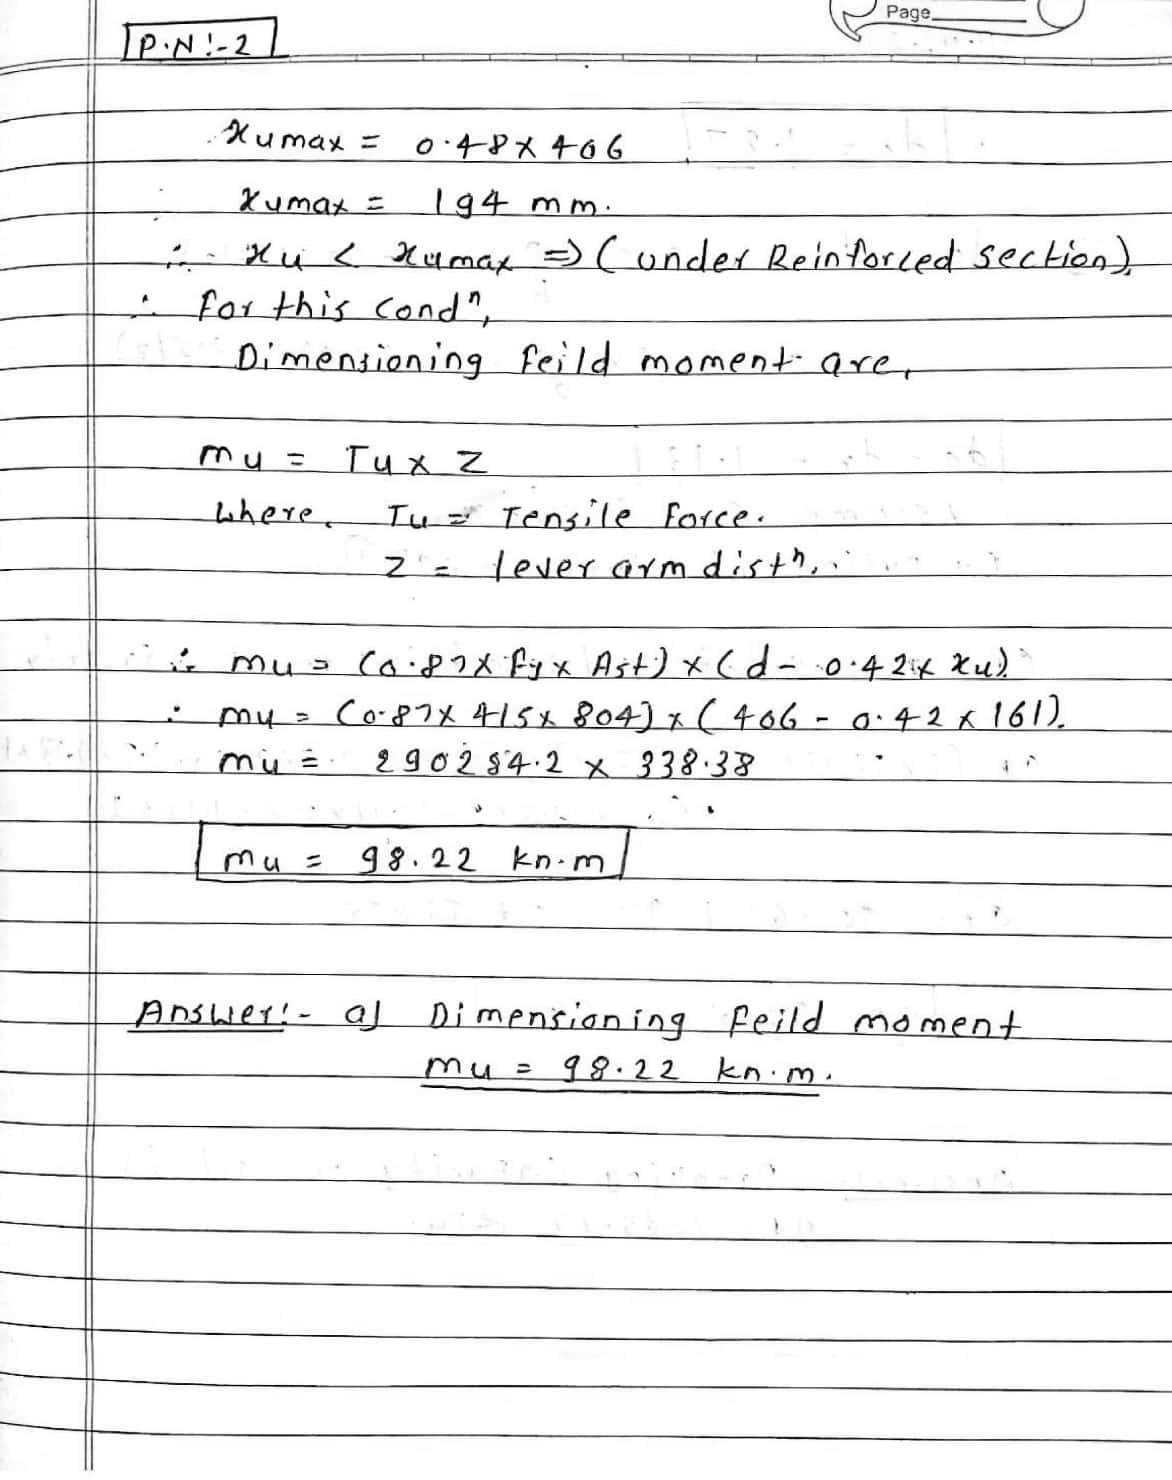 Page
P.N:-2
xumax = 0.48 x 406
xumax = 194 mm.
∴ xu < xumax => (under Reinforced section),
∴ for this condn,
Dimensioning feild moment are,
mu = Tu x Z
where, Tu = Tensile force.
Z = lever arm disth.
∴ mu = (0.87 x fy x Ast) x (d - 0.42 x xu)
∴ mu = (0.87 x 415 x 804) x (406 - 0.42 x 161).
mu = 290284.2 x 338.38
mu = 98.22 kn.m
Answer:- a) Dimensioning feild moment
mu = 98.22 kn.m.